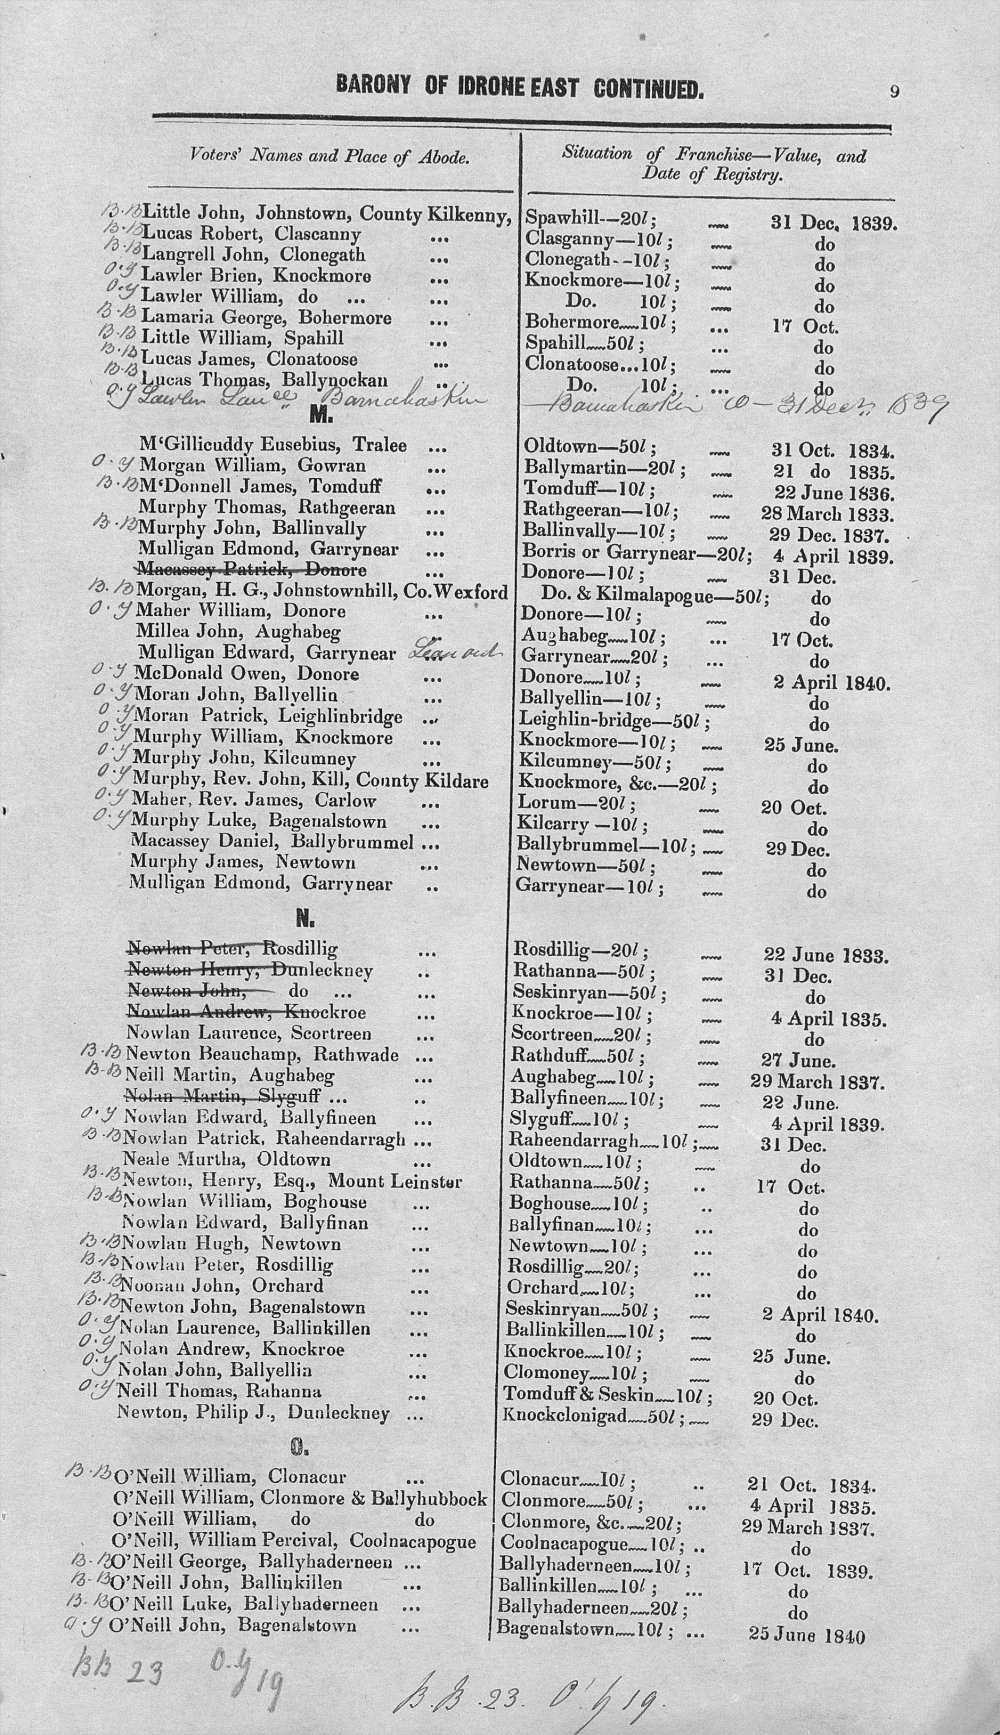 BARONY OF IDRONE EAST CONTINUED. 9
Voters' Names and Place of Abode. Situation of Franchise—Value, and
Date of Registry.
B.B Little John, Johnstown, County Kilkenny, Spawhill--20l; 31 Dec. 1839.
B.B Lucas Robert, Clascanny ... Clasganny—10l; do
B.B Langrell John, Clonegath ... Clonegath--10l; do
O.Y Lawler Brien, Knockmore ... Knockmore—10l; do
O.Y Lawler William, do ... ... Do. 10l; do
B.B Lamaria George, Bohermore ... Bohermore....10l; ... 17 Oct.
B.B Little William, Spahill ... Spahill....50l; ... do
B.B Lucas James, Clonatoose ... Clonatoose...10l; ... do
B.B Lucas Thomas, Ballynockan ... Do. 10l; ... do
O.Y Lawler Barnahaskin Barnahaskin 31 Decr. 1839
M.
M'Gillicuddy Eusebius, Tralee ... Oldtown—50l; 31 Oct. 1834.
O.Y Morgan William, Gowran ... Ballymartin—20l; 21 do 1835.
B.B M'Donnell James, Tomduff ... Tomduff—10l; 22 June 1836.
Murphy Thomas, Rathgeeran ... Rathgeeran—10l; 28 March 1833.
B.B Murphy John, Ballinvally ... Ballinvally—10l; 29 Dec. 1837.
Mulligan Edmond, Garrynear ... Borris or Garrynear—20l; 4 April 1839.
Macassey Patrick, Donore ... Donore—10l; 31 Dec.
B.B Morgan, H. G., Johnstownhill, Co.Wexford Do. & Kilmalapogue—50l; do
O.Y Maher William, Donore ... Donore—10l; do
Millea John, Aughabeg ... Aughabeg....10l; ... 17 Oct.
Mulligan Edward, Garrynear ... Garrynear....20l; ... do
O.Y McDonald Owen, Donore ... Donore....10l; 2 April 1840.
O.Y Moran John, Ballyellin ... Ballyellin—10l; do
O.Y Moran Patrick, Leighlinbridge ... Leighlin-bridge—50l; do
O.Y Murphy William, Knockmore ... Knockmore—10l; 25 June.
O.Y Murphy John, Kilcumney ... Kilcumney—50l; do
O.Y Murphy, Rev. John, Kill, County Kildare Knockmore, &c.—20l; do
O.Y Maher, Rev. James, Carlow ... Lorum—20l; 20 Oct.
O.Y Murphy Luke, Bagenalstown ... Kilcarry—10l; do
Macassey Daniel, Ballybrummel ... Ballybrummel—10l; 29 Dec.
Murphy James, Newtown ... Newtown—50l; do
Mulligan Edmond, Garrynear .. Garrynear—10l; do
N.
Nowlan Peter, Rosdillig ... Rosdillig—20l; 22 June 1833.
Newton Henry, Dunleckney .. Rathanna—50l; 31 Dec.
Newton John, do ... ... Seskinryan—50l; do
Nowlan Andrew, Knockroe ... Knockroe—10l; 4 April 1835.
Nowlan Laurence, Scortreen ... Scortreen....20l; do
B.B Newton Beauchamp, Rathwade ... Rathduff....50l; 27 June.
B-B Neill Martin, Aughabeg ... Aughabeg....10l; 29 March 1837.
Nolan Martin, Slyguff ... .. Ballyfineen....10l; 22 June.
O.Y Nowlan Edward, Ballyfineen ... Slyguff....10l; 4 April 1839.
B.B Nowlan Patrick, Raheendarragh ... Raheendarragh....10l; 31 Dec.
Neale Murtha, Oldtown ... Oldtown....10l; do
B.B Newton, Henry, Esq., Mount Leinster Rathanna....50l; .. 17 Oct.
B-B Nowlan William, Boghouse ... Boghouse....10l; .. do
Nowlan Edward, Ballyfinan ... Ballyfinan....10l; ... do
B.B Nowlan Hugh, Newtown ... Newtown....10l; ... do
B.B Nowlan Peter, Rosdillig ... Rosdillig....20l; ... do
B.B Noonan John, Orchard ... Orchard....10l; ... do
B.B Newton John, Bagenalstown ... Seskinryan....50l; 2 April 1840.
O.Y Nolan Laurence, Ballinkillen ... Ballinkillen....10l; do
O.Y Nolan Andrew, Knockroe ... Knockroe....10l; 25 June.
O.Y Nolan John, Ballyellin ... Clomoney....10l; do
O.Y Neill Thomas, Rahanna ... Tomduff & Seskin....10l; 20 Oct.
Newton, Philip J., Dunleckney ... Knockclonigad....50l; 29 Dec.
O.
B.B O'Neill William, Clonacur ... Clonacur....10l; .. 21 Oct. 1834.
O'Neill William, Clonmore & Ballyhubbock Clonmore....50l; ... 4 April 1835.
O'Neill William, do do Clonmore, &c.....20l; 29 March 1837.
O'Neill, William Percival, Coolnacapogue Coolnacapogue....10l; .. do
B.B O'Neill George, Ballyhaderneen ... Ballyhaderneen....10l; 17 Oct. 1839.
B-B O'Neill John, Ballinkillen ... Ballinkillen....10l; ... do
B-B O'Neill Luke, Ballyhaderneen ... Ballyhaderneen....20l; do
O.Y O'Neill John, Bagenalstown ... Bagenalstown....10l; ... 25 June 1840
BB 23 O.Y 19
B.B. 23. O'Y 19.